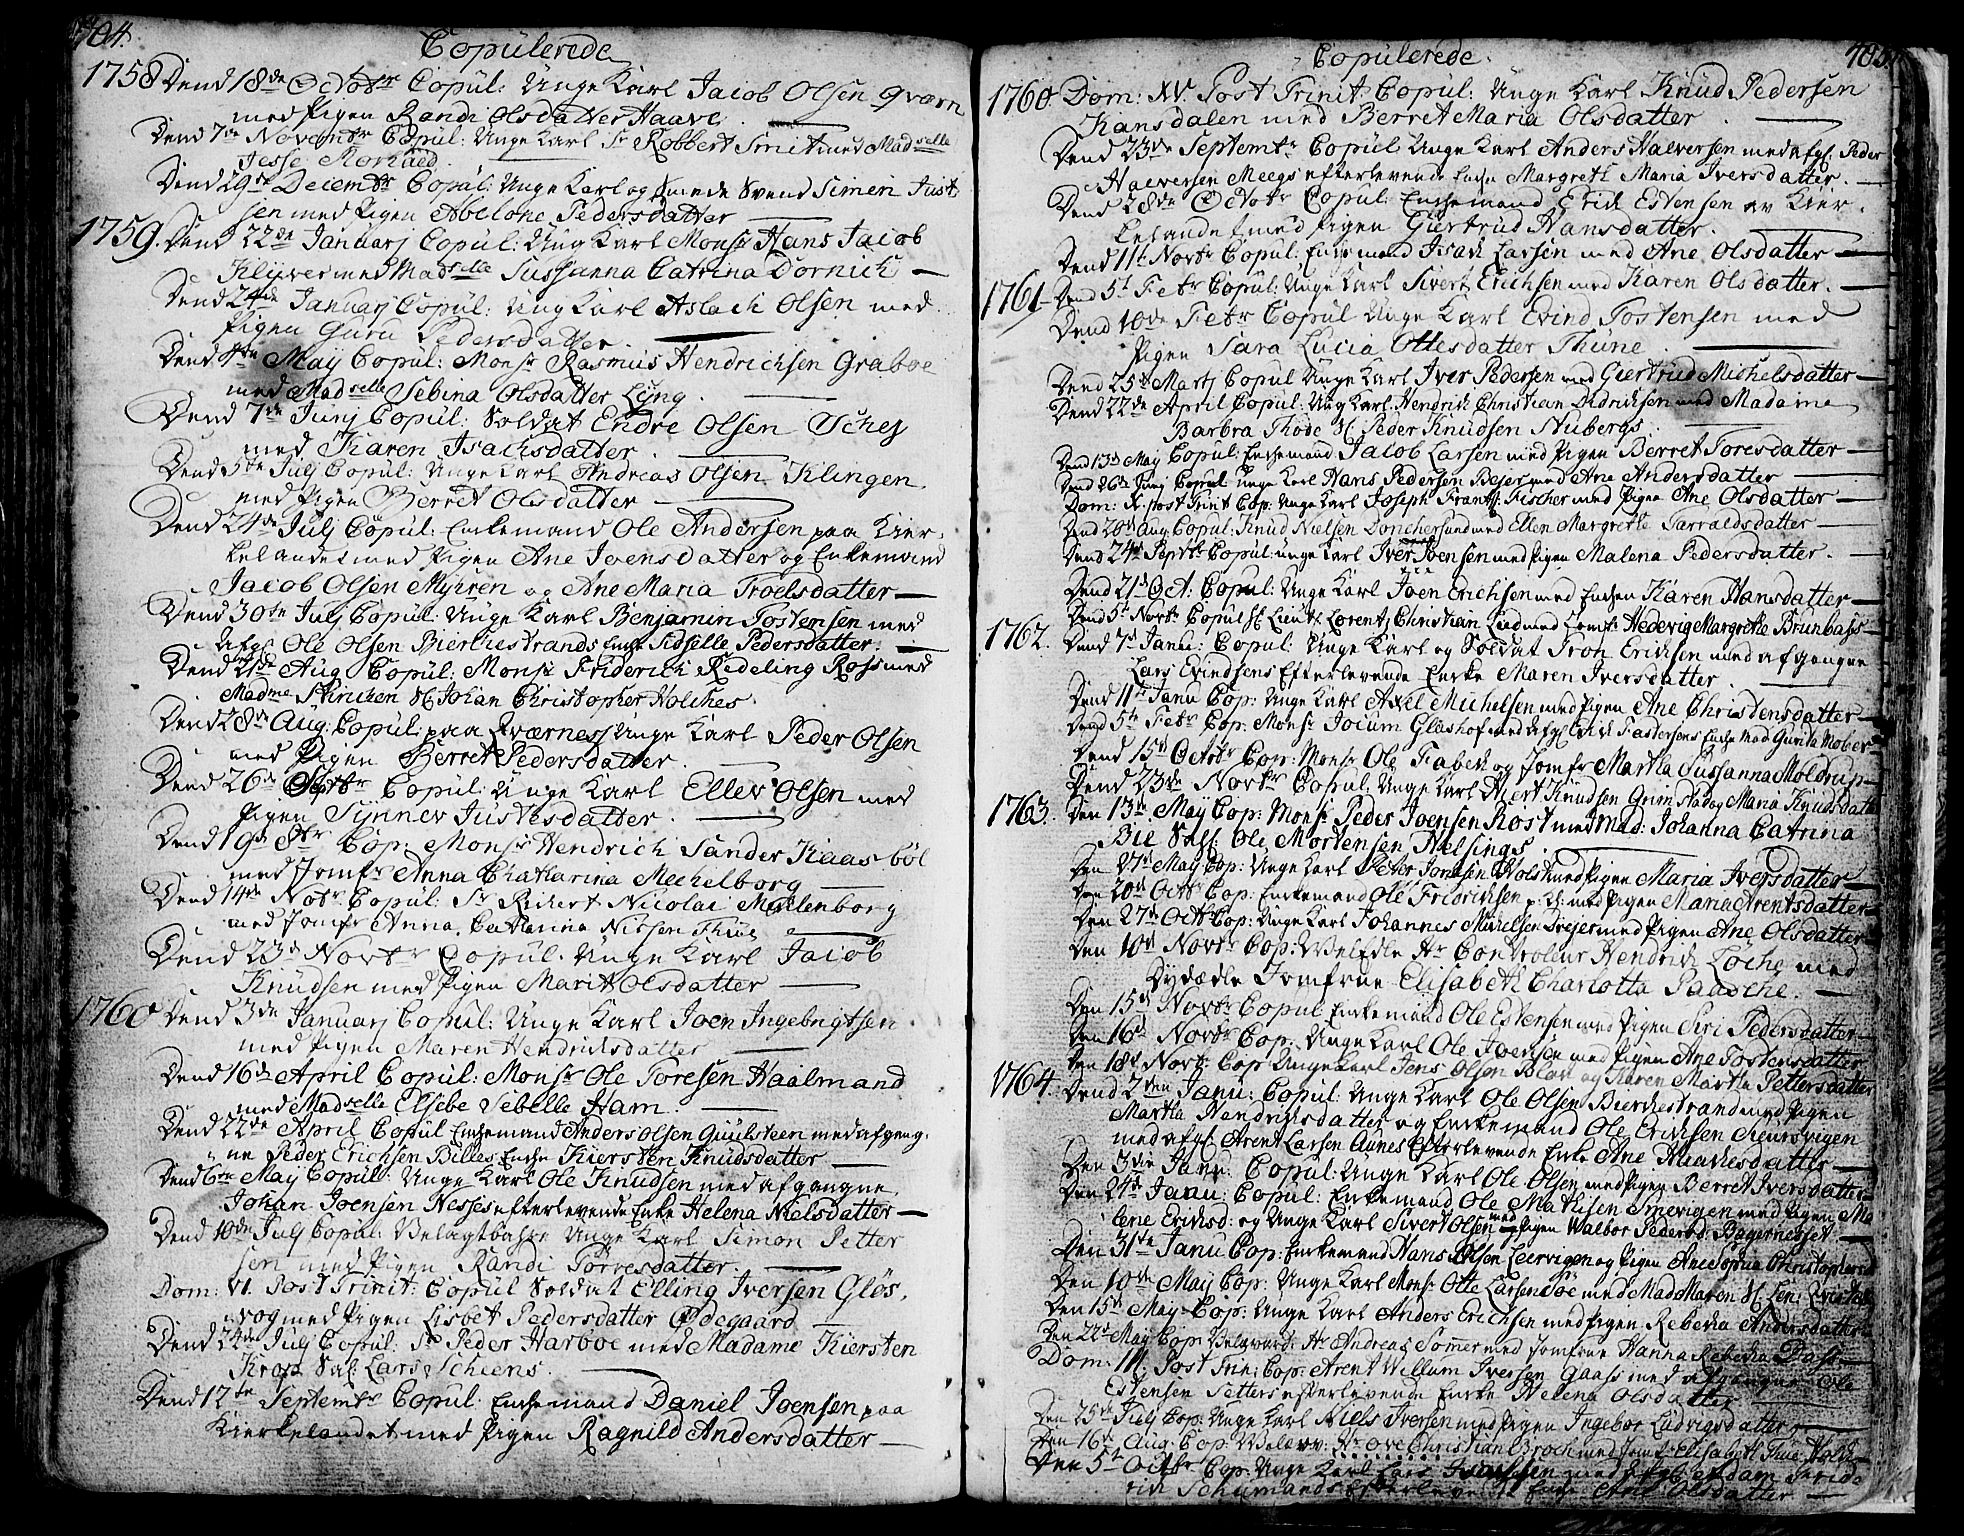 704.
Copulerede
1758 Dend 18de Octobr Copul: Unge Karl Jacob Olsen Qværn
med Pigen Randi Olsdatter Haave.
Dend 7de Novembr Copul: Unge Karl Sr Robbert Smit med Madselle
Jesse
Dend 29de Decembr Copul: Unge Karl og Smede Svend Simen Just
sen med Pigen Abelone Pedersdatter
1759. Dend 22de Januarj Copul: Ung Karl Monsr Hans Jacob
Klüver med Madselle Sussanna Catrina Dornich
Dend 24de Januarj Copul: Ung Karl Aslach Olsen med
Pigen Guru Pedersdatter.
Dend 4de May Copul: Monsr Rasmus Hendrichsen Graboe
med Madselle Sebina Olsdatter Lyng.
Dend 7de Junj Copul: Soldat Endre Olsen Schej
med Karen Isachsdatter.
Dend 5te Julj Copul: Unge Karl Andreas Olsen Klingen.
med Pigen Berret Olsdatter
Dend 24de Julj Copul: Enkemand Ole Andersen paa Kier,
kelandet med Pigen Ane Ivensdatter og Enkemand
Jacob Olsen Myhren og Ane Maria Troelsdatter
Dend 30te Julj Copul: Unge Karl Benjamin Tostensen med
Afgl. Ole Olsen Bierkestrands Enke Sidselle Pedersdatter.
Dend 21de Aug Copul: Monsr Friderich Rideling Ross med
Madme Sl Johan Christopher Holches.
Dend 28de Aug: Copul: paa Qværnes Unge Karl Peder Olsen
med Pigen Berret Pedersdatter.
Dend 26de Septbr Copul: Unge Karl Ellev Olsen med
Pigen Synnev Justesdatter.
Dend 19de Cop: Monsr Hendrich Sander Kaasbøl
med Jomfr Anna Chatharina Mechelborg
Dend 14de Nobr Copul: Sr Richert Nicolai Mechlenborg
med Jomfr Anna Catharina Nissen Thue
Dend 23de Novbr Copul: Unge Karl Jacob
Knudsen med Pigen Marit Olsdatter
1760 Dend 3de Januarj Copul: Unge Karl Joen Ingebrigtsen.
med Pigen Maren Hendrichsdatter
Dend 16de April Copul: Monsr Ole Toresen Haalmand
med Madselle Elsebe Sibelle Ham.
Dend 22de April Copul Enkemand Anders Olsen Guulsteen med afgeng,
ne Peder Erichsen Billes Enke Kiersten Knudsdatter
Dend 6te May Copul: Unge Karl Ole Knudsen med afgangne,
Johan Joensen Nesses efterlevende Enke Helena Nielsdatter
Dend 10de Julj Copul: Unge Karl Simon Petter
sen med Pigen Randi Torresdatter.
Dom: VI. Post Trinit: Copul Soldat Elling Iversen Gløs,
vog med Pigen Lisbet Pedersdatter Ødegaard
Dend 24de Julj Copul: Sr Peder Harboe med Madame Kiersten
Krop Sal: Lars Schiens.
Dend 12te Septembr Copul: Enkemand Daniel Joensen paa
Kierkelandet med Pigen Ragnild Andersdatter
705.
Copulerede.
1760. Dom: XV. Post Trinit: Copul: Unge Karl Knud Pedersen
Kansdalen med Berret Maria Olsdatter.
Dend 23de Septembr Copul Unge Karl Anders Halversen med afgl. Peder
Halversen Meegs efterlevende Enke Margrethe Maria Iversdatter.
Dend 28de Octobr Copul: Enkemand Erich Estensen av Kier,
kelandet med Pigen Giertrud Hansdatter.
Dend 11te Novbr Copul: Enkemand Isach Larsen med Ane Olsdatter
1761 Dend 5t Febr Copul: Unge Karl Sivert Erichsen med Karen Olsdatter.
Dend 10de Febr Copul Unge Karl Evind Tostensen med
Pigen Sara Lucia Ottesdatter Thune
Dend 25de Martj Copul Unge Karl Iver Pedersen med Giertrud Michelsdatter
Dend 22de April Copul: Ung Karl Hendrich Christian Didrichsen med Madame
Barbra Thode Sl Peder Knudsen Nubergs.
Dend 13de May Copul: Enkemand Jacob Larsen med Pigen Berret Toresdatter
Dend 26de Junj Copul Unge Karl Hans Pedersen med Ane Andersdatter
Dom: X. post Trinit Cop: Unge Karl Joseph Frantz: Fischer med Pigen Ane Olsdatter
Dend 20de Aug: Copul: Knud Nielsen med Ellen Margrethe Tarraldsdatter
Dend 24de Septbr Copul: unge Karl Iver Joensen med Pigen Malena Pedersdatter.
Dend 21de Oct: Copul: Unge Karl Joen Erichsen med Enken Karen Hansdatter
Dend 5t Novbr Copul Sl Lieut: Lorent Christian Lied med Jomfr Hedevig Margrethe Brunbass
1762. Dend 7de Janu: Copul: Unge Karl og Soldat Tron Erichsen med afgangne
Lars Evindsens Efterlevende Enke Maren Iversdatter.
Dend 11te Janu Cop: Unge Karl Axel Michelsen med Pigen Ane Christensdatter
Dend 5te Febr Cop: Monsr Jocum Glashof med afgl. Enke Mad Gunta Mober
Dend 15de Octobr Cop: Monsr Ole Fabech og Jomfr Martha Sussanna Moldrup
Dend 23de Novbr Copul: Unge Karl Knudsen Grimstad og Maria Knudsdatter
1763. Den 13de May Cop: Monsr Peder Joensen Rost med Mad: Johanna Catrina
Bie Sal: Ole Mortensen Nelsings.
Den 27de May Cop: Unge Karl Peter Jonssen Holst med Pigen Maria Iversdatter
Den 20de Octbr Cop: Enkemand Ole Fridrichsen p. K: med Pigen Maria Arentsdatter
Den 27de Octb Cop: Unge Karl Johannes Michelsen Drejer med Pigen Ane Olsdatter
Den 10de Novbr Cop: Velædle Hr Controlleur Hendrich Loche med
Dydædle Jomfrue Elisabeth Charlotta Paasche.
Den 15de Novbr Copul Enkemand Ole Estensen med Pigen Siri Pedersdatter
Den 16de Novbr Cop: Unge Karl Ole Ivensen med Pigen Ane Tostensdatter
Den 18de Novbr Cop Unge Karl Jens Olsen Blax og Karen Martha Pettersdatter
1764. Dend 2den Janu: Copul: Unge Karl Ole Olsen Bierkestrand med Pigen
Martha Hendrichsdatter og Enkemand Ole Erichsen
med afgl. Arent Larsen Aunes Efterlevende Enke Ane Haachesdatter
Den 3die Janu: Copul: Unge Karl Ole Olsen med Pigen Berret Iversdatter
Den 24de Janu: Copul: Enkemand Ole Mathisen Smevigen med Pigen Ma
lene Erichsd: og Unge Karl Sivert Olsen med Pigen Walbor Pedersd: Bagernesset
Den 31te Janu Cop: Enkemand Hans Olsen Leervigen og Pigen Ane Sophia Christophersd
Den 10de May Cop: Unge Karl Monsr Otte Larsen Søe med Mad Maren Sl.
Den 15de May Cop: Unge Karl Anders Erichsen med Pigen Rebecka Andersdatter
Den 22de May Cop: Velærværd: Hr Andreas Sommer med Jomfrue Hanna Rebecka Dass
Dom: III. Post Trin: Cop: Arent Willum Iversen Gaass med afgangne Ole
Estensen Setters efterlevende Enke Helena Olsdatter
Den 25de Julj Cop: Unge Karl Niels Iversen med Pigen Ingebor Ludvigsdatter
Den 16de Aug: Cop: Velærv: Hr Ove Christian Broch med Jomfr Elisabeth
Den 5te Octbr Cop: Unge Karl Lars Ivarssen med afgl. Adam
rich Schumands Efterlevende Enke Ane Olsdatter